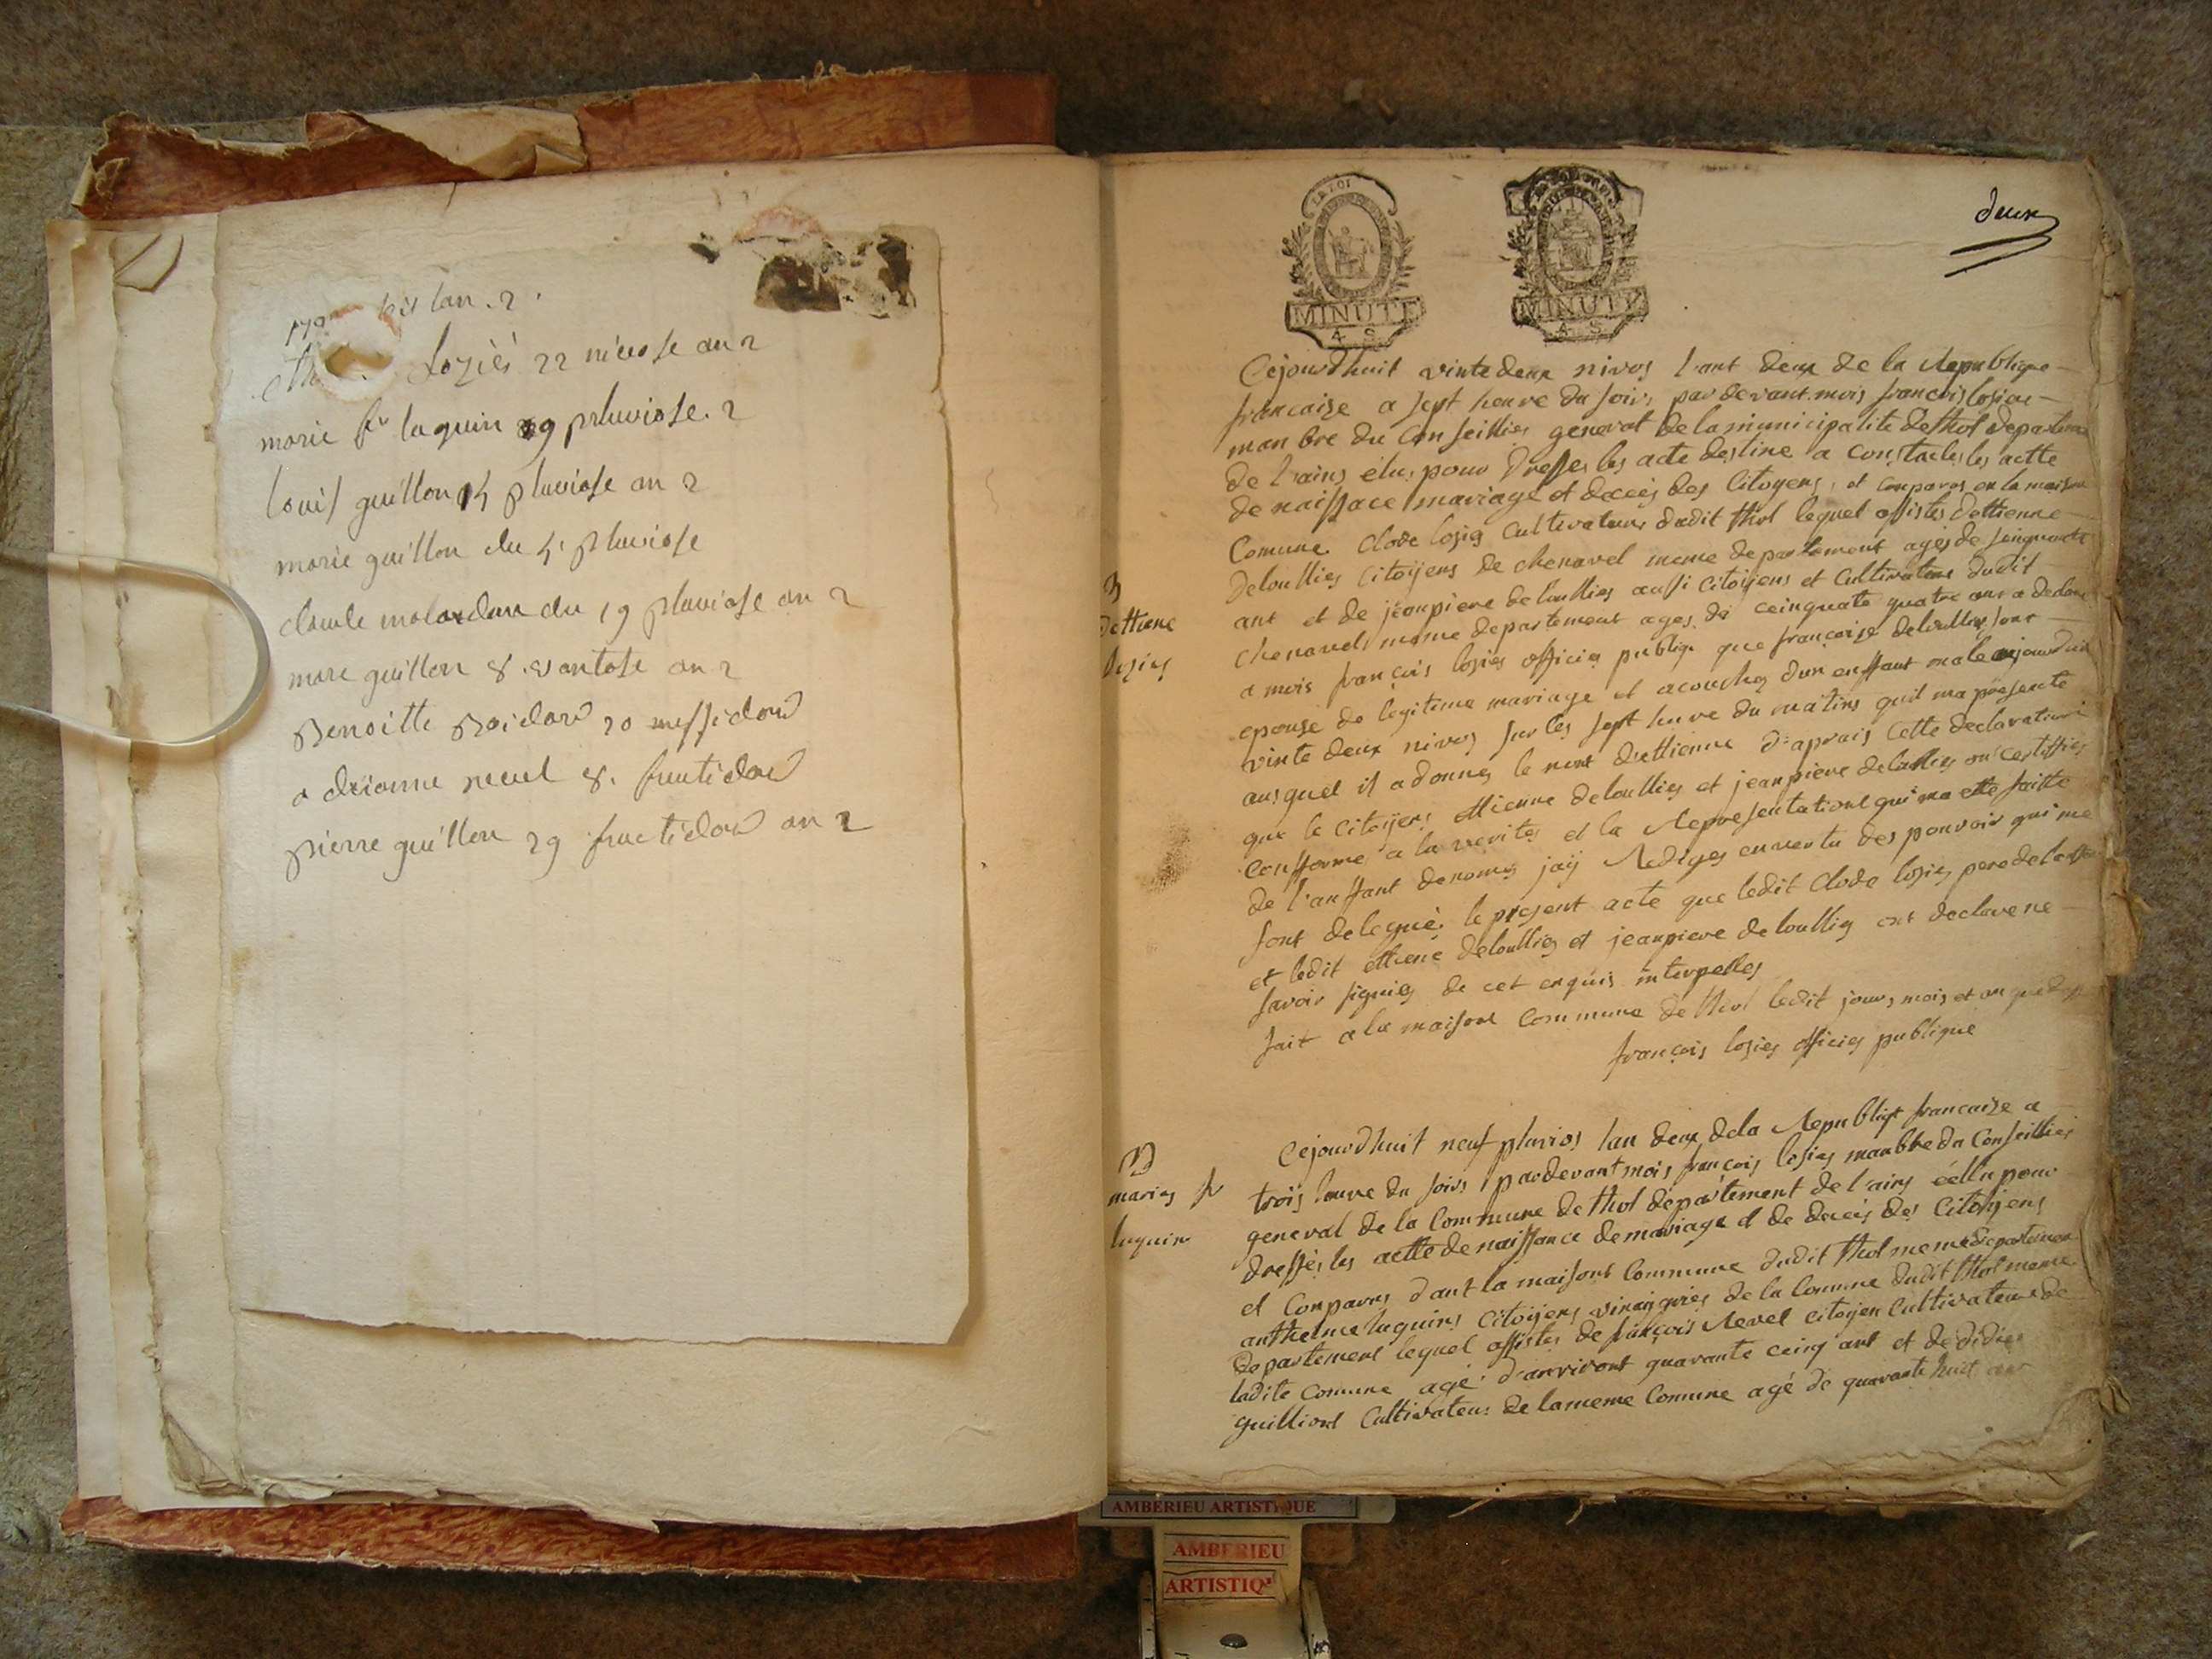 bis lan. 2.
Loziés 22 nivose an 2
marie fse luquin 9 pluviose. 2
louis guillon 15 pluviose an 2
marie guillon du 5. pluviose
claude molardon du 19 pluviose an 2
marc guillon 8. vantose an 2
Benoitte 20 messidord
adrianne revel 8. fructidord
pierre guillon 29 fructidord an 2
LA LOI
MINUTE
4 S
MINUTE
4 S
deux
Cejourdhuit vinte deux nivos l'ant deux de la Republique
francaise a sept heure du soirs pardevant mois francois losier
manbre du Conseillier general de la municipalite de thol departemen
de l'ains élus pour dresser les acte destine a constacter les actte
de naissace mariage et deceés des Citoyens, et conparus en la maison
Comune Clode losies Cultivateur dudit thol lequel assistes d'ettienne
deloullies Citoijens de chenavel meme departement ages de seinquante
ant et de jeanpiere deloullies aussi Citoijens et Cultivateur dudit
chenavel meme departement ages de ceinquate quatre ans a declare
a mois françois losies officies publiqu que françoise deloullies sont
epouse de legitime mariage et acouches d'un enffant male aujourd'uit
vinte deux nivos sur les sept heure du matins quil ma présenté
ausquel il a donnes le nont d'ettienne d'aprais cette declarationt
que le Citoijens ettienne deloullies et jeanpiere deloullies on certiffies
confforme a la verites et la Representationt qui ma ette faitte
de l'anffant denomés jaij Rediges en vertu des pouvoir qui me
sont delegués le présent acte que ledit Clode losies pere de l'enffant
et ledit ettiene deloullies et jeanpiere deloullies ont declare ne
savoir signies de cet enquis interpelles
fait a la maisont Commune de thol ledit jours mois et an que dessus
françois losies officies publique
N
dettiene
losies
Cejourdhuit neuf pluvios lan deux dela Republiqe francaise a
trois heure du soirs pardevant mois françois losies manbre du Conseillies
general de la Commune de thol département de l'ains éellu pour
dressés les actte de naissance de mariage et de deceis des Citoijens
et Conparus dant la maisont Commune dudit thol meme departement
anthelme luquins Citoijens vinaigries de la Comune dudit thol meme
departement lequel assistes de françois Revel Citoijen Cultivateur de
ladite Comune agé d'anviront quarante ceinq ant et de didies
guilliont Cultivateur de la meme Comune agé de quarante huit ans
N
maries fr
luquin
AMBERIEU ARTISTIQUE
AMBERIEU
ARTISTIQ